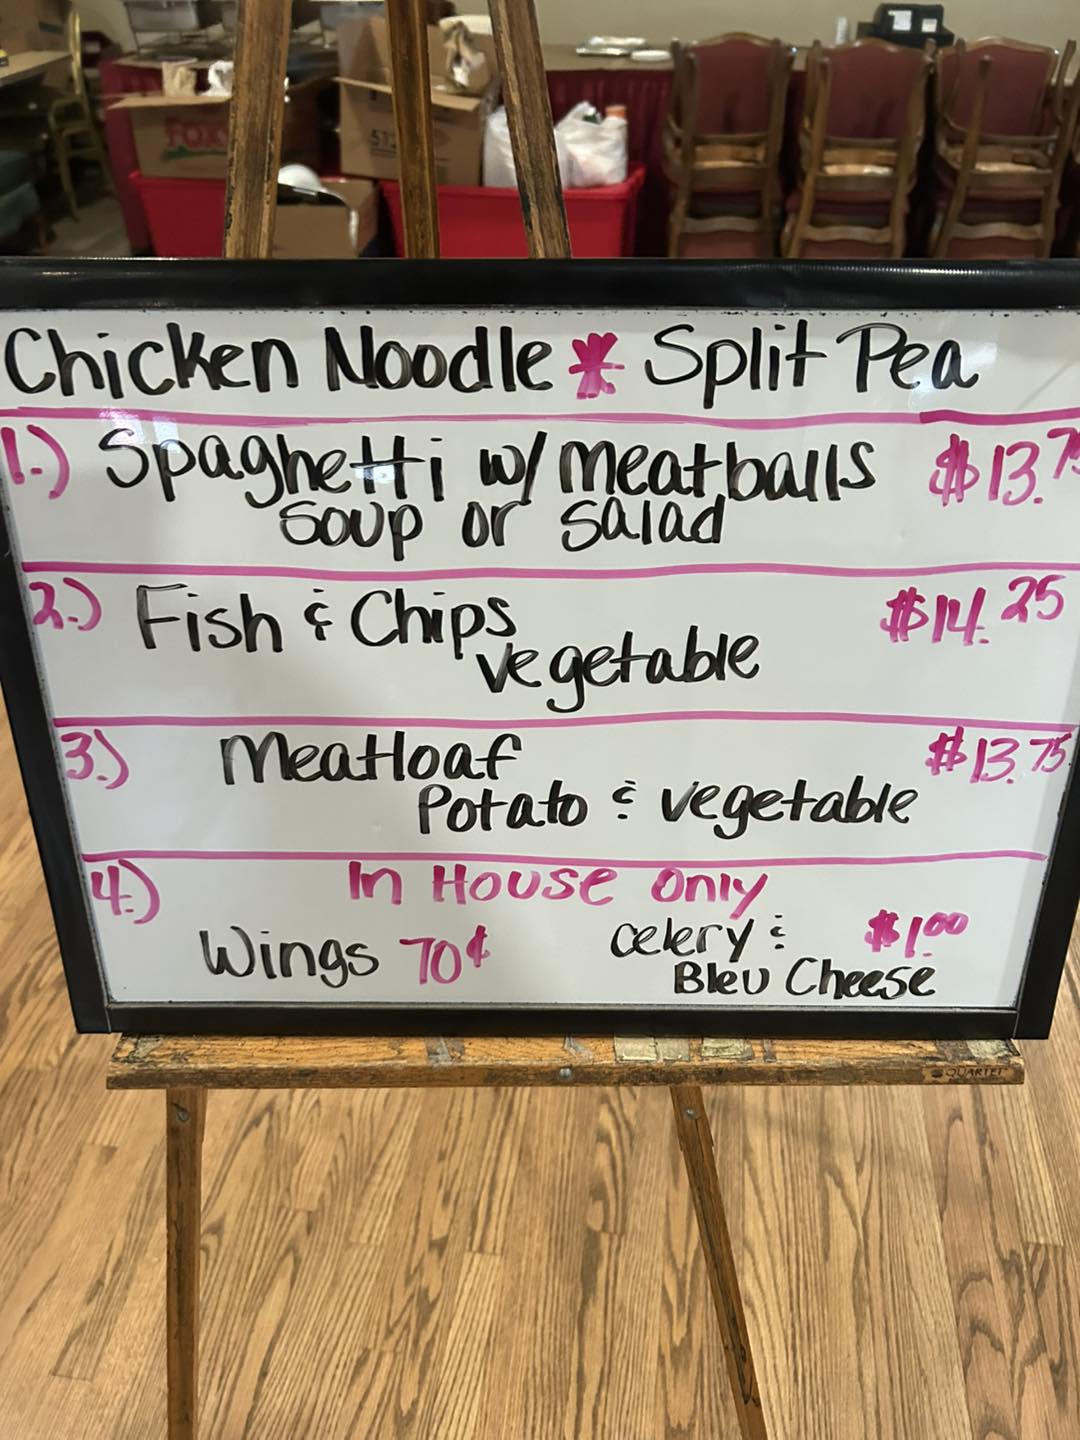 FOX
Chicken Noodle * Split Pea
1.) Spaghetti w/ meatballs $13.75
soup or salad
2.) Fish & Chips $14.25
vegetable
3.) Meatloaf $13.75
Potato & vegetable
4.) In House Only
Wings 70¢ celery & $1.00
Bleu Cheese
QUARTET